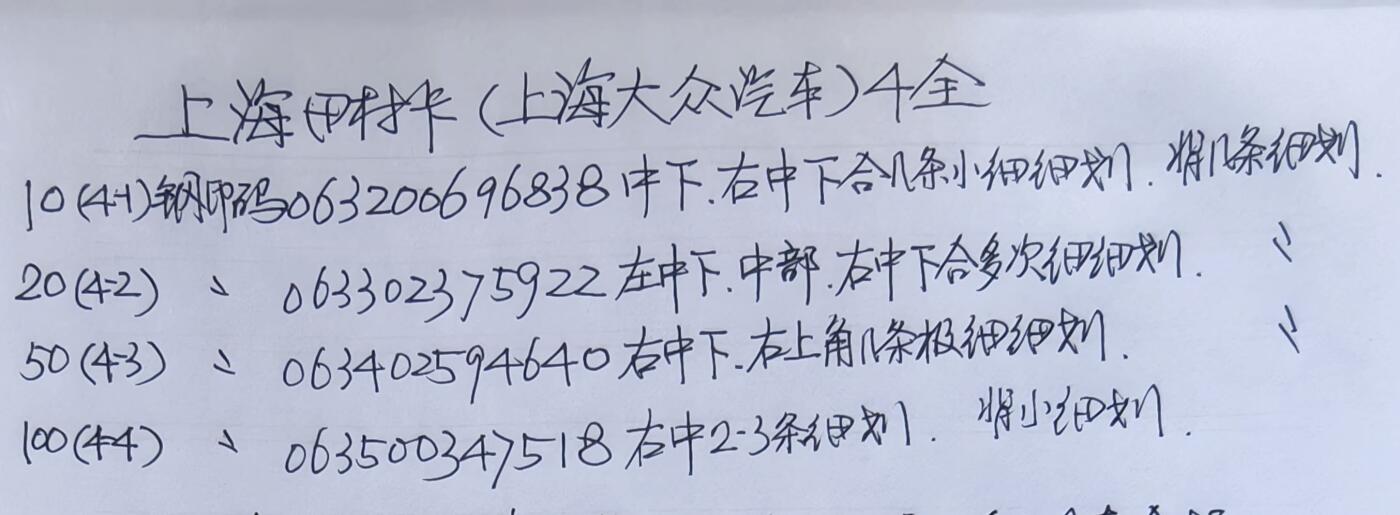 上海田村卡(上海大众汽车)4全
10(4-1)钢印码063200696838中下.右中下合几条小细细划.背几条细划.
20(4-2) 〃 063302375922左中下.中部.右中下合多次细细划. 〃
50(4-3) 〃 063402594640右中下.右上角几条极细细划. 〃
100(4-4) 〃 063500347518右中2-3条细划. 背小细划.